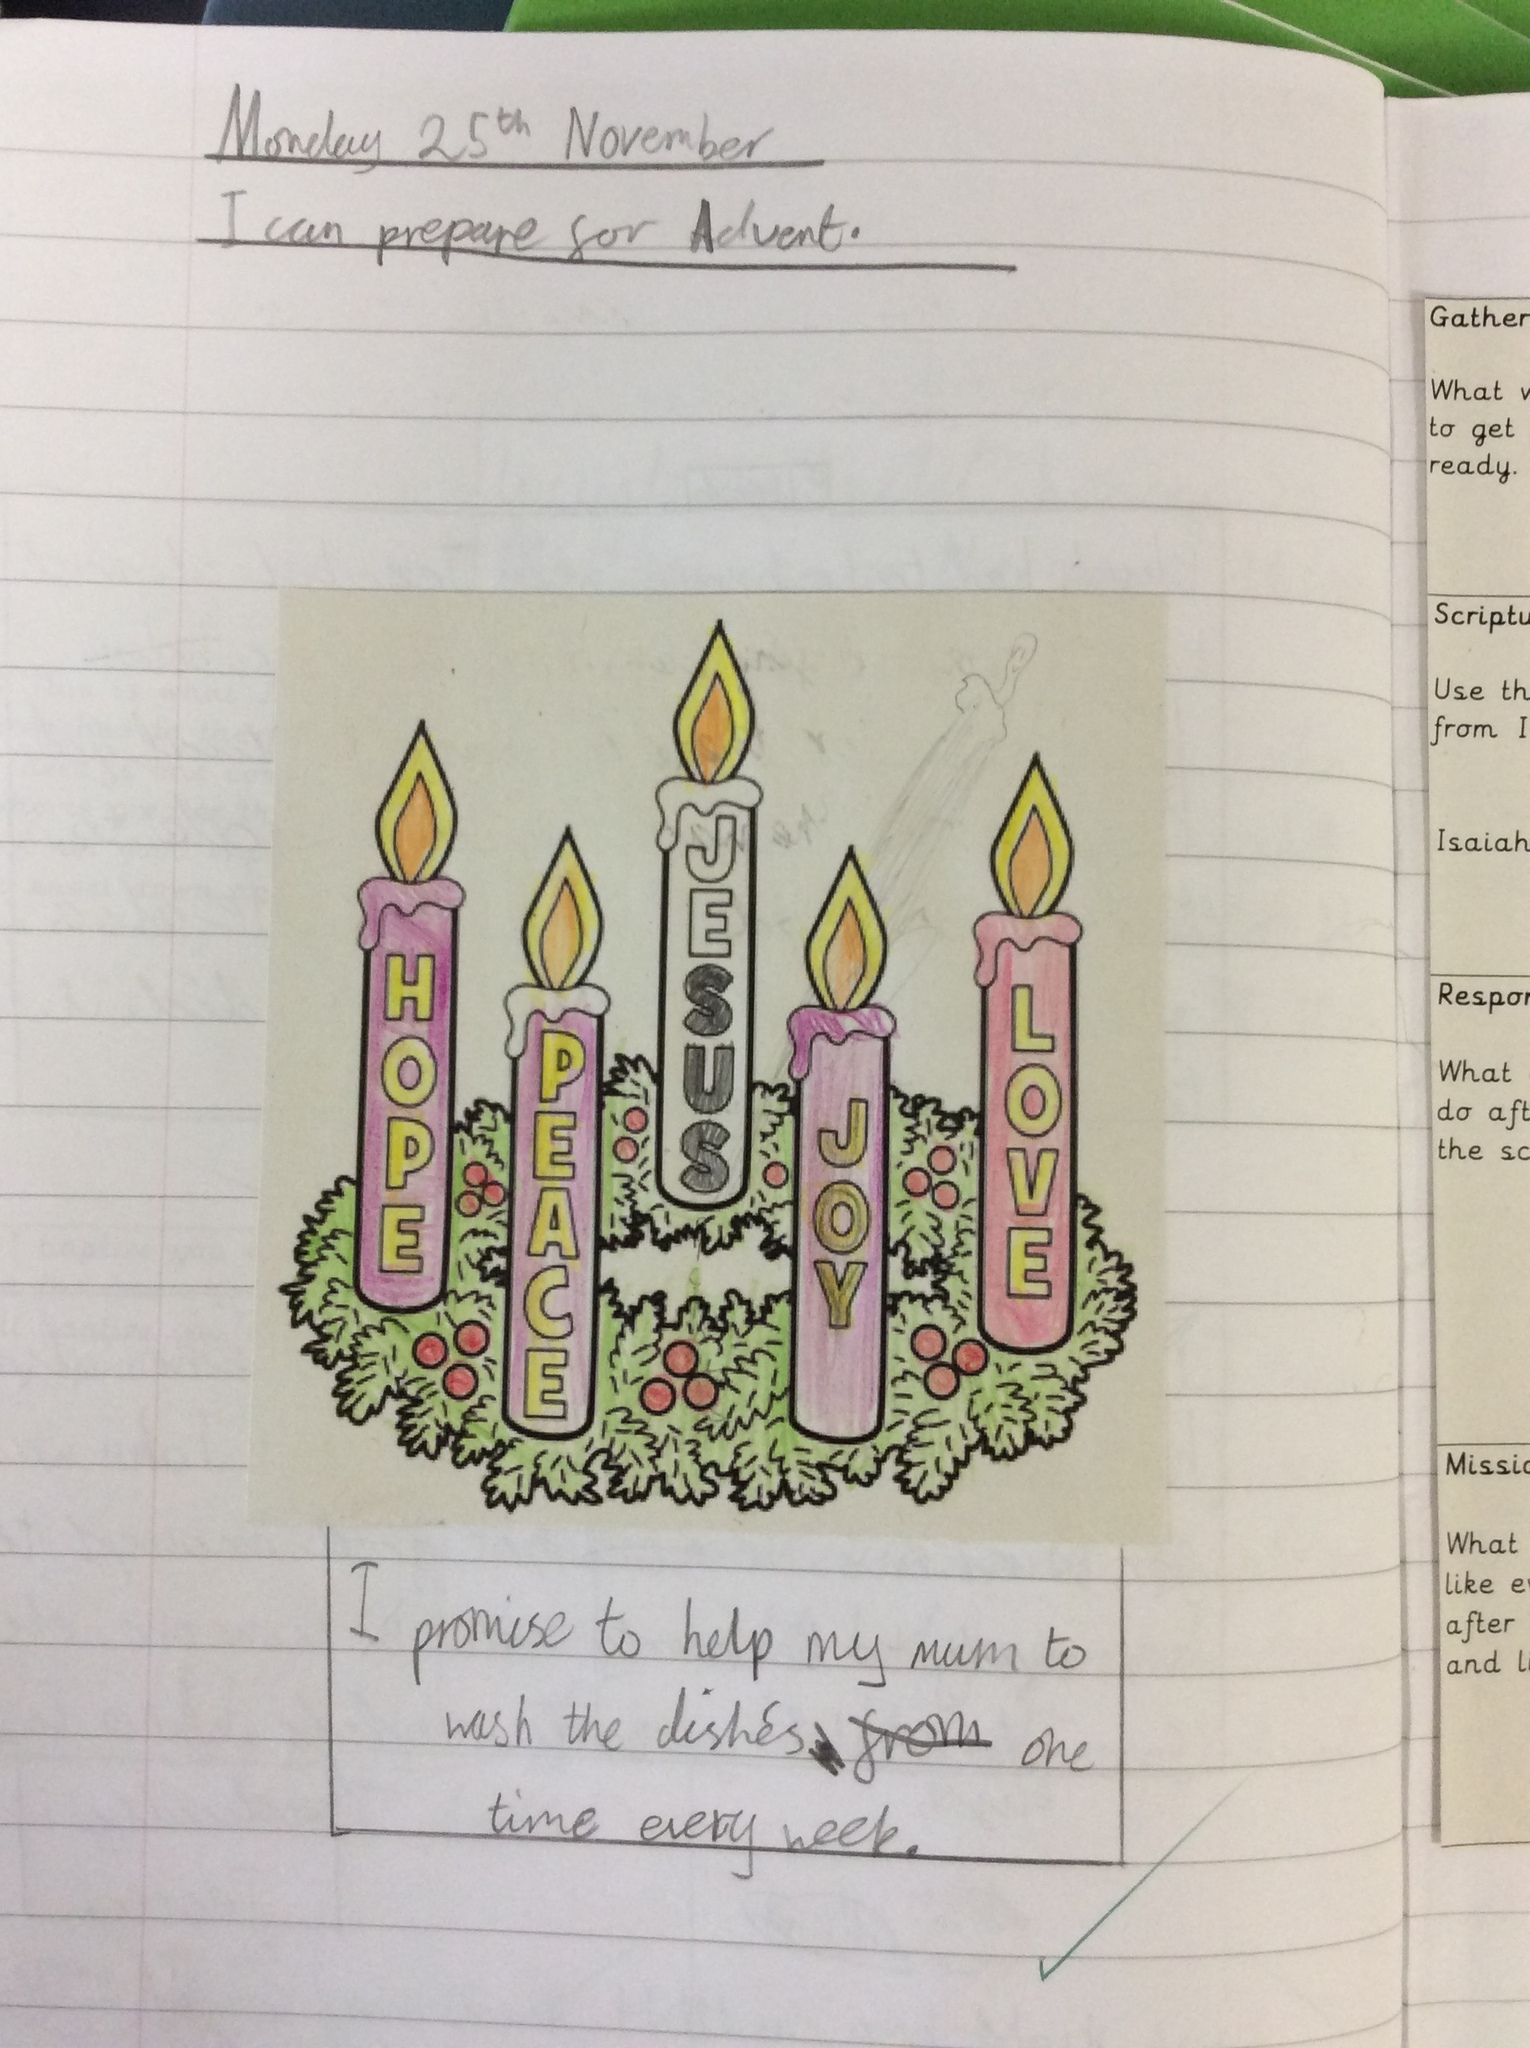 Monday 25th November
I can prepare for Advent.
HOPE
PEACE
JESUS
JOY
LOVE
I promise to help my mum to
wash the dishes from one
time every week.
Gather
What
to get
ready.
Use
from
Isaiah
What
do
the
What
like
after
and